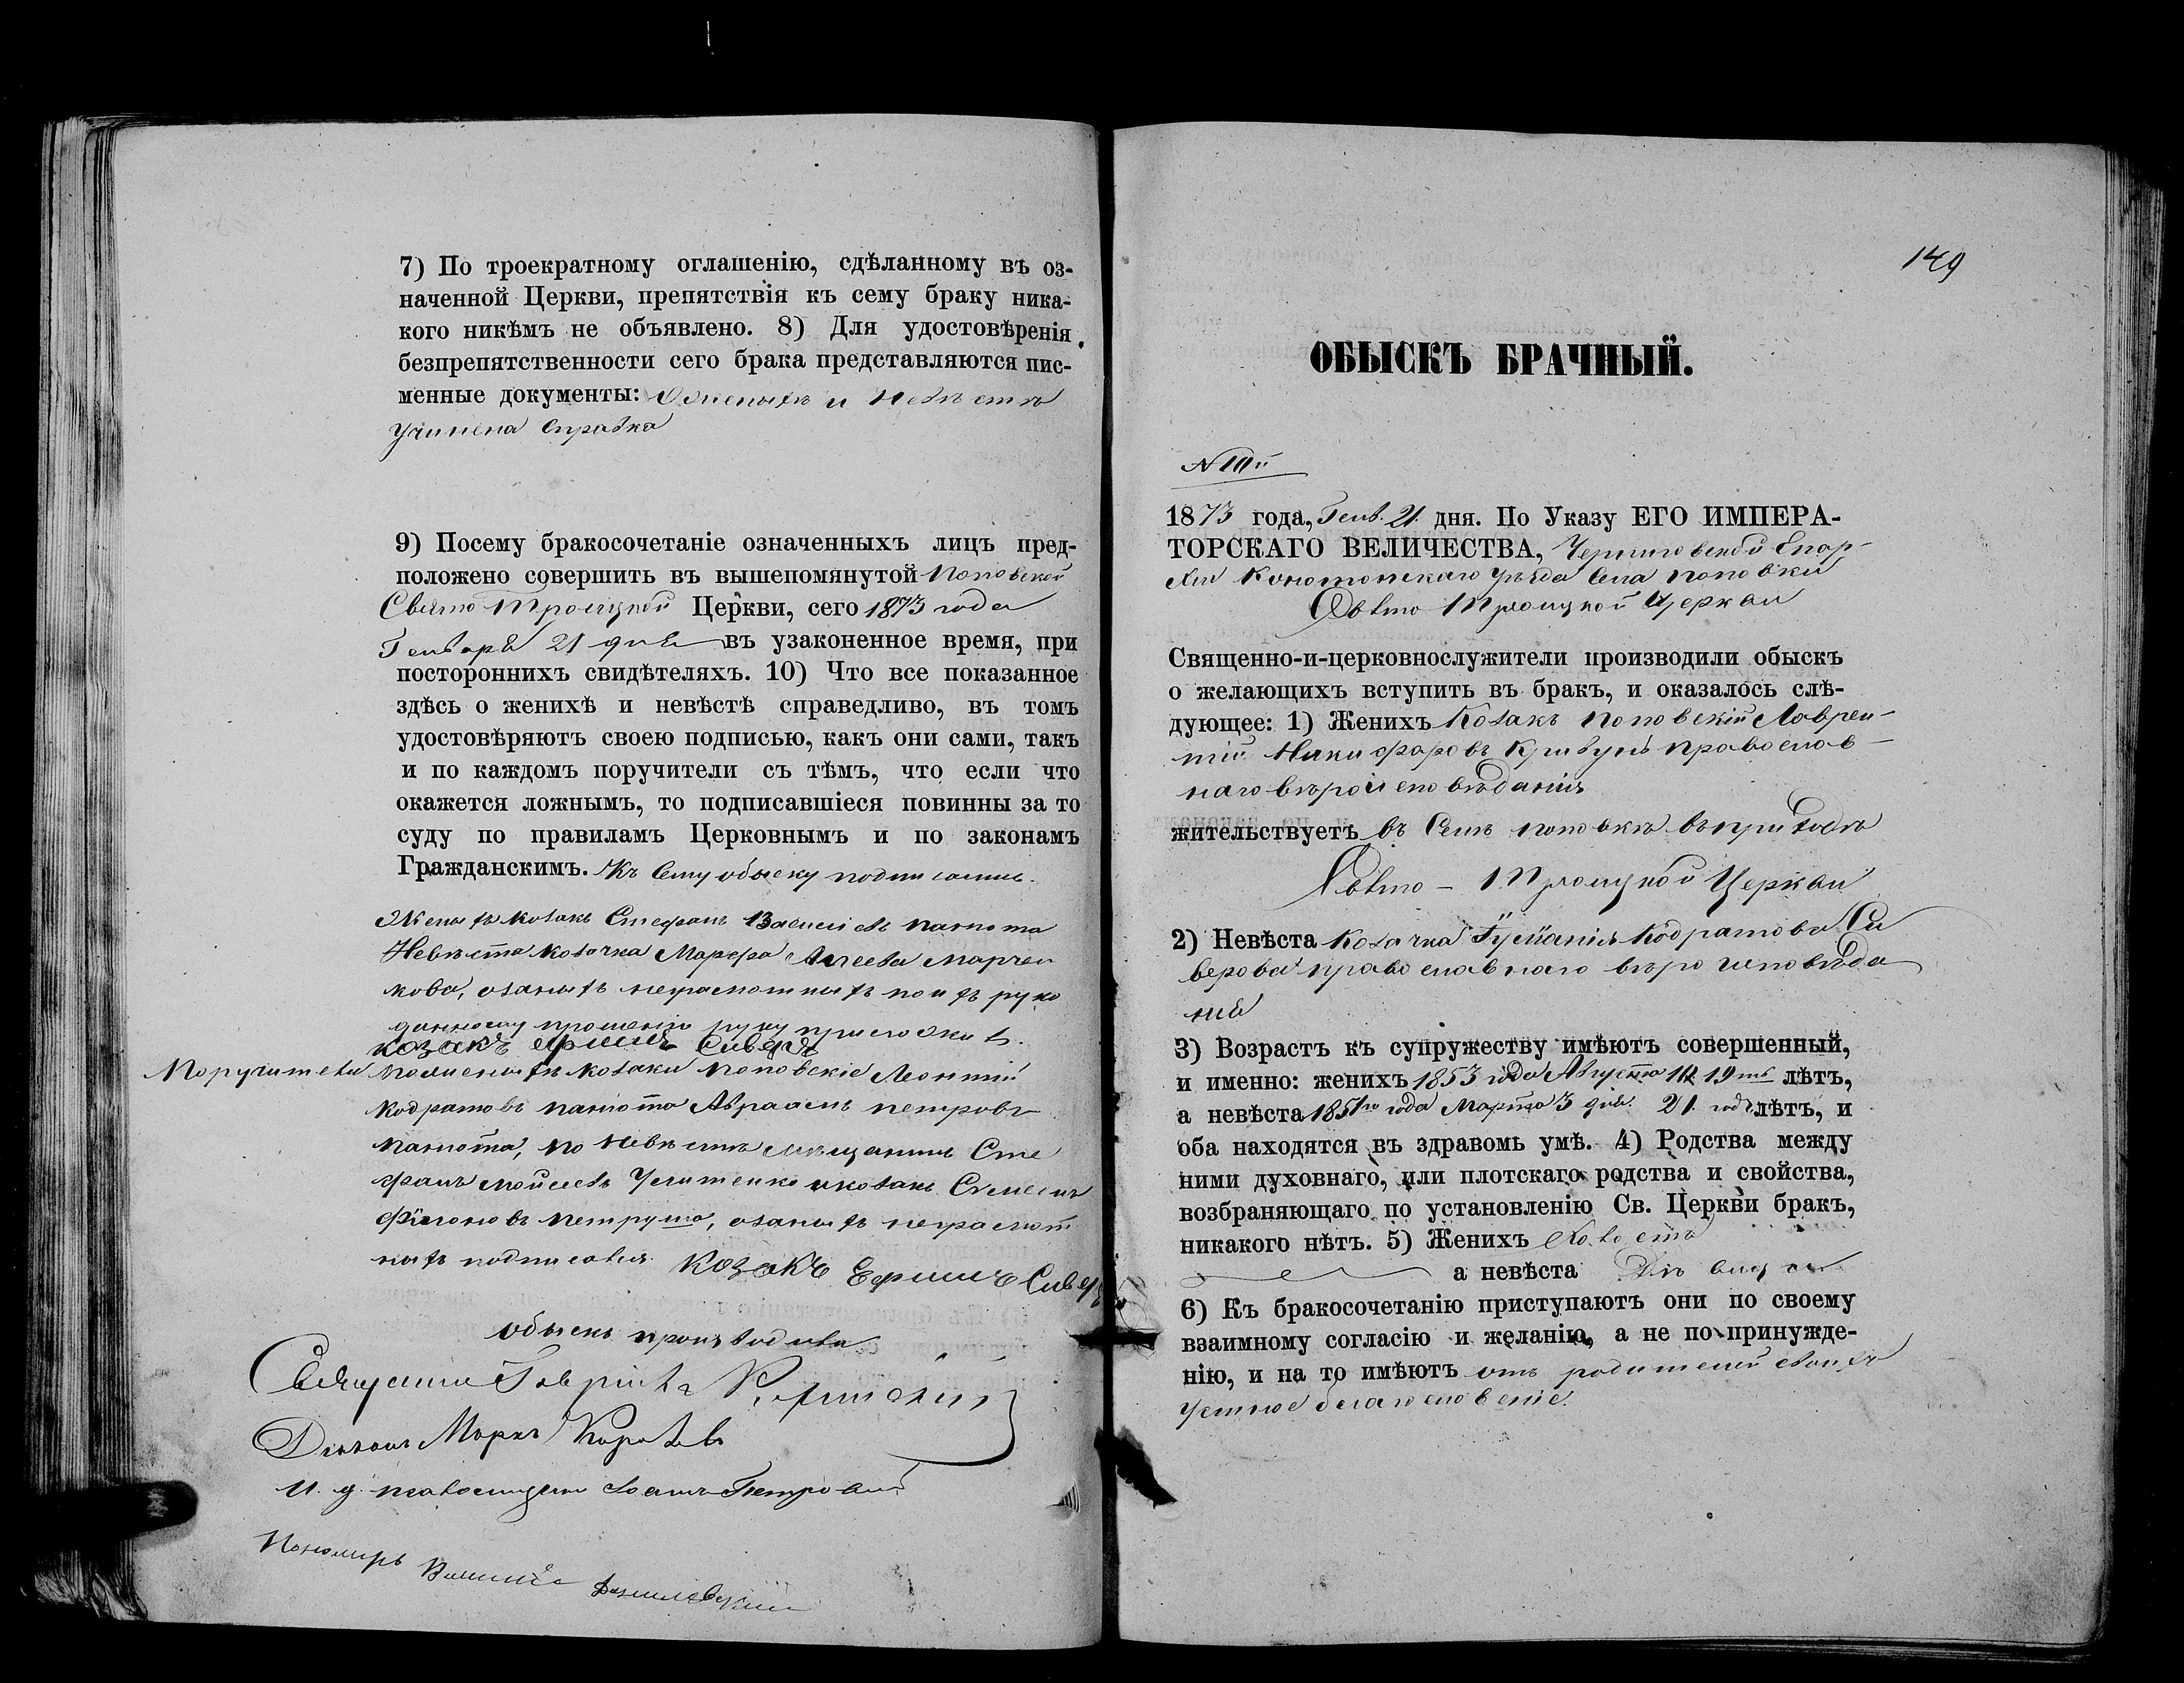 7) По троекратному оглашенію, сдѣланному въ оз-
наченной Церкви, препятствія къ сему браку ника-
кого никѣмъ не объявлено. 8) Для удостовѣренія
безпрепятственности сего брака представляются пис-
менные документы: о женихѣ и невѣстѣ
учинена справка
9) Посему бракосочетаніе означенныхъ лицъ пред-
положено совершить въ вышепомянутой Поповской
Свято Троицкой Церкви, сего 1873 года
Генваря 21 дня въ узаконенное время, при
постороннихъ свидѣтеляхъ. 10) Что все показанное
здѣсь о женихѣ и невѣстѣ справедливо, въ томъ
удостовѣряютъ своею подписью, какъ они сами, такъ
и по каждомъ поручители съ тѣмъ, что если что
окажется ложнымъ, то подписавшіеся повинны за то
суду по правиламъ Церковнымъ и по законамъ
Гражданскимъ. Къ сему обыску подписались.
Женихъ козакъ Стефанъ Василіевъ панюта
Невѣста козачка Марфа Марчен
кова, озаныхъ неграмотныхъ по ихъ руко
данному прошенію руку приложилъ.
козакъ Сиверъ
Поручители по женихѣ козаки поповскіе Леонтій
Кодратовъ панюта Авраамъ петровъ
панюта, по невѣстѣ мѣщанинъ Сте
фанъ мойсеевъ и козакъ Семенъ
петруша, озаныхъ неграмот
ныхъ подписался козакъ Ефимъ Сиверъ
обыскъ производили
Священникъ Гавріилъ
Діаконъ Маркъ
И. д. псаломщика Іоаннъ Петровскій
Пономарь Данилевскій
149
ОБЫСКЪ БРАЧНЫЙ.
N 10й
1873 года, Генв. 21. дня. По Указу ЕГО ИМПЕРА-
ТОРСКАГО ВЕЛИЧЕСТВА, Черниговской Епар-
хіи Конотопскаго уѣзда села поповки
Свято-Троицкой Церкви
Священно-и-церковнослужители производили обыскъ
о желающихъ вступить въ бракъ, и оказалось слѣ-
дующее: 1) Женихъ козакъ поповскій Лаврен-
тій Никифоровъ Кривунъ православ-
наго вѣроисповѣданія
жительствуетъ въ селѣ поповкѣ въ приходѣ
Свято-Троицкой Церкви
2) Невѣста козачка Іуліанія Кодратова Си
верова православнаго вѣроисповѣда
нія
3) Возрастъ къ супружеству имѣютъ совершенный,
и именно: женихъ 1853 года Августа 10 19ть лѣтъ,
а невѣста 1851го года Марта 3 дня. 21. годъ лѣтъ, и
оба находятся въ здравомъ умѣ. 4) Родства между
ними духовнаго, или плотскаго родства и свойства,
возбраняющаго по установленію Св. Церкви бракъ,
никакого нѣтъ. 5) Женихъ холостъ
а невѣста дѣвица
6) Къ бракосочетанію приступаютъ они по своему
взаимному согласію и желанію, а не по принужде-
нію, и на то имѣютъ отъ родителей своихъ
устное благословеніе.